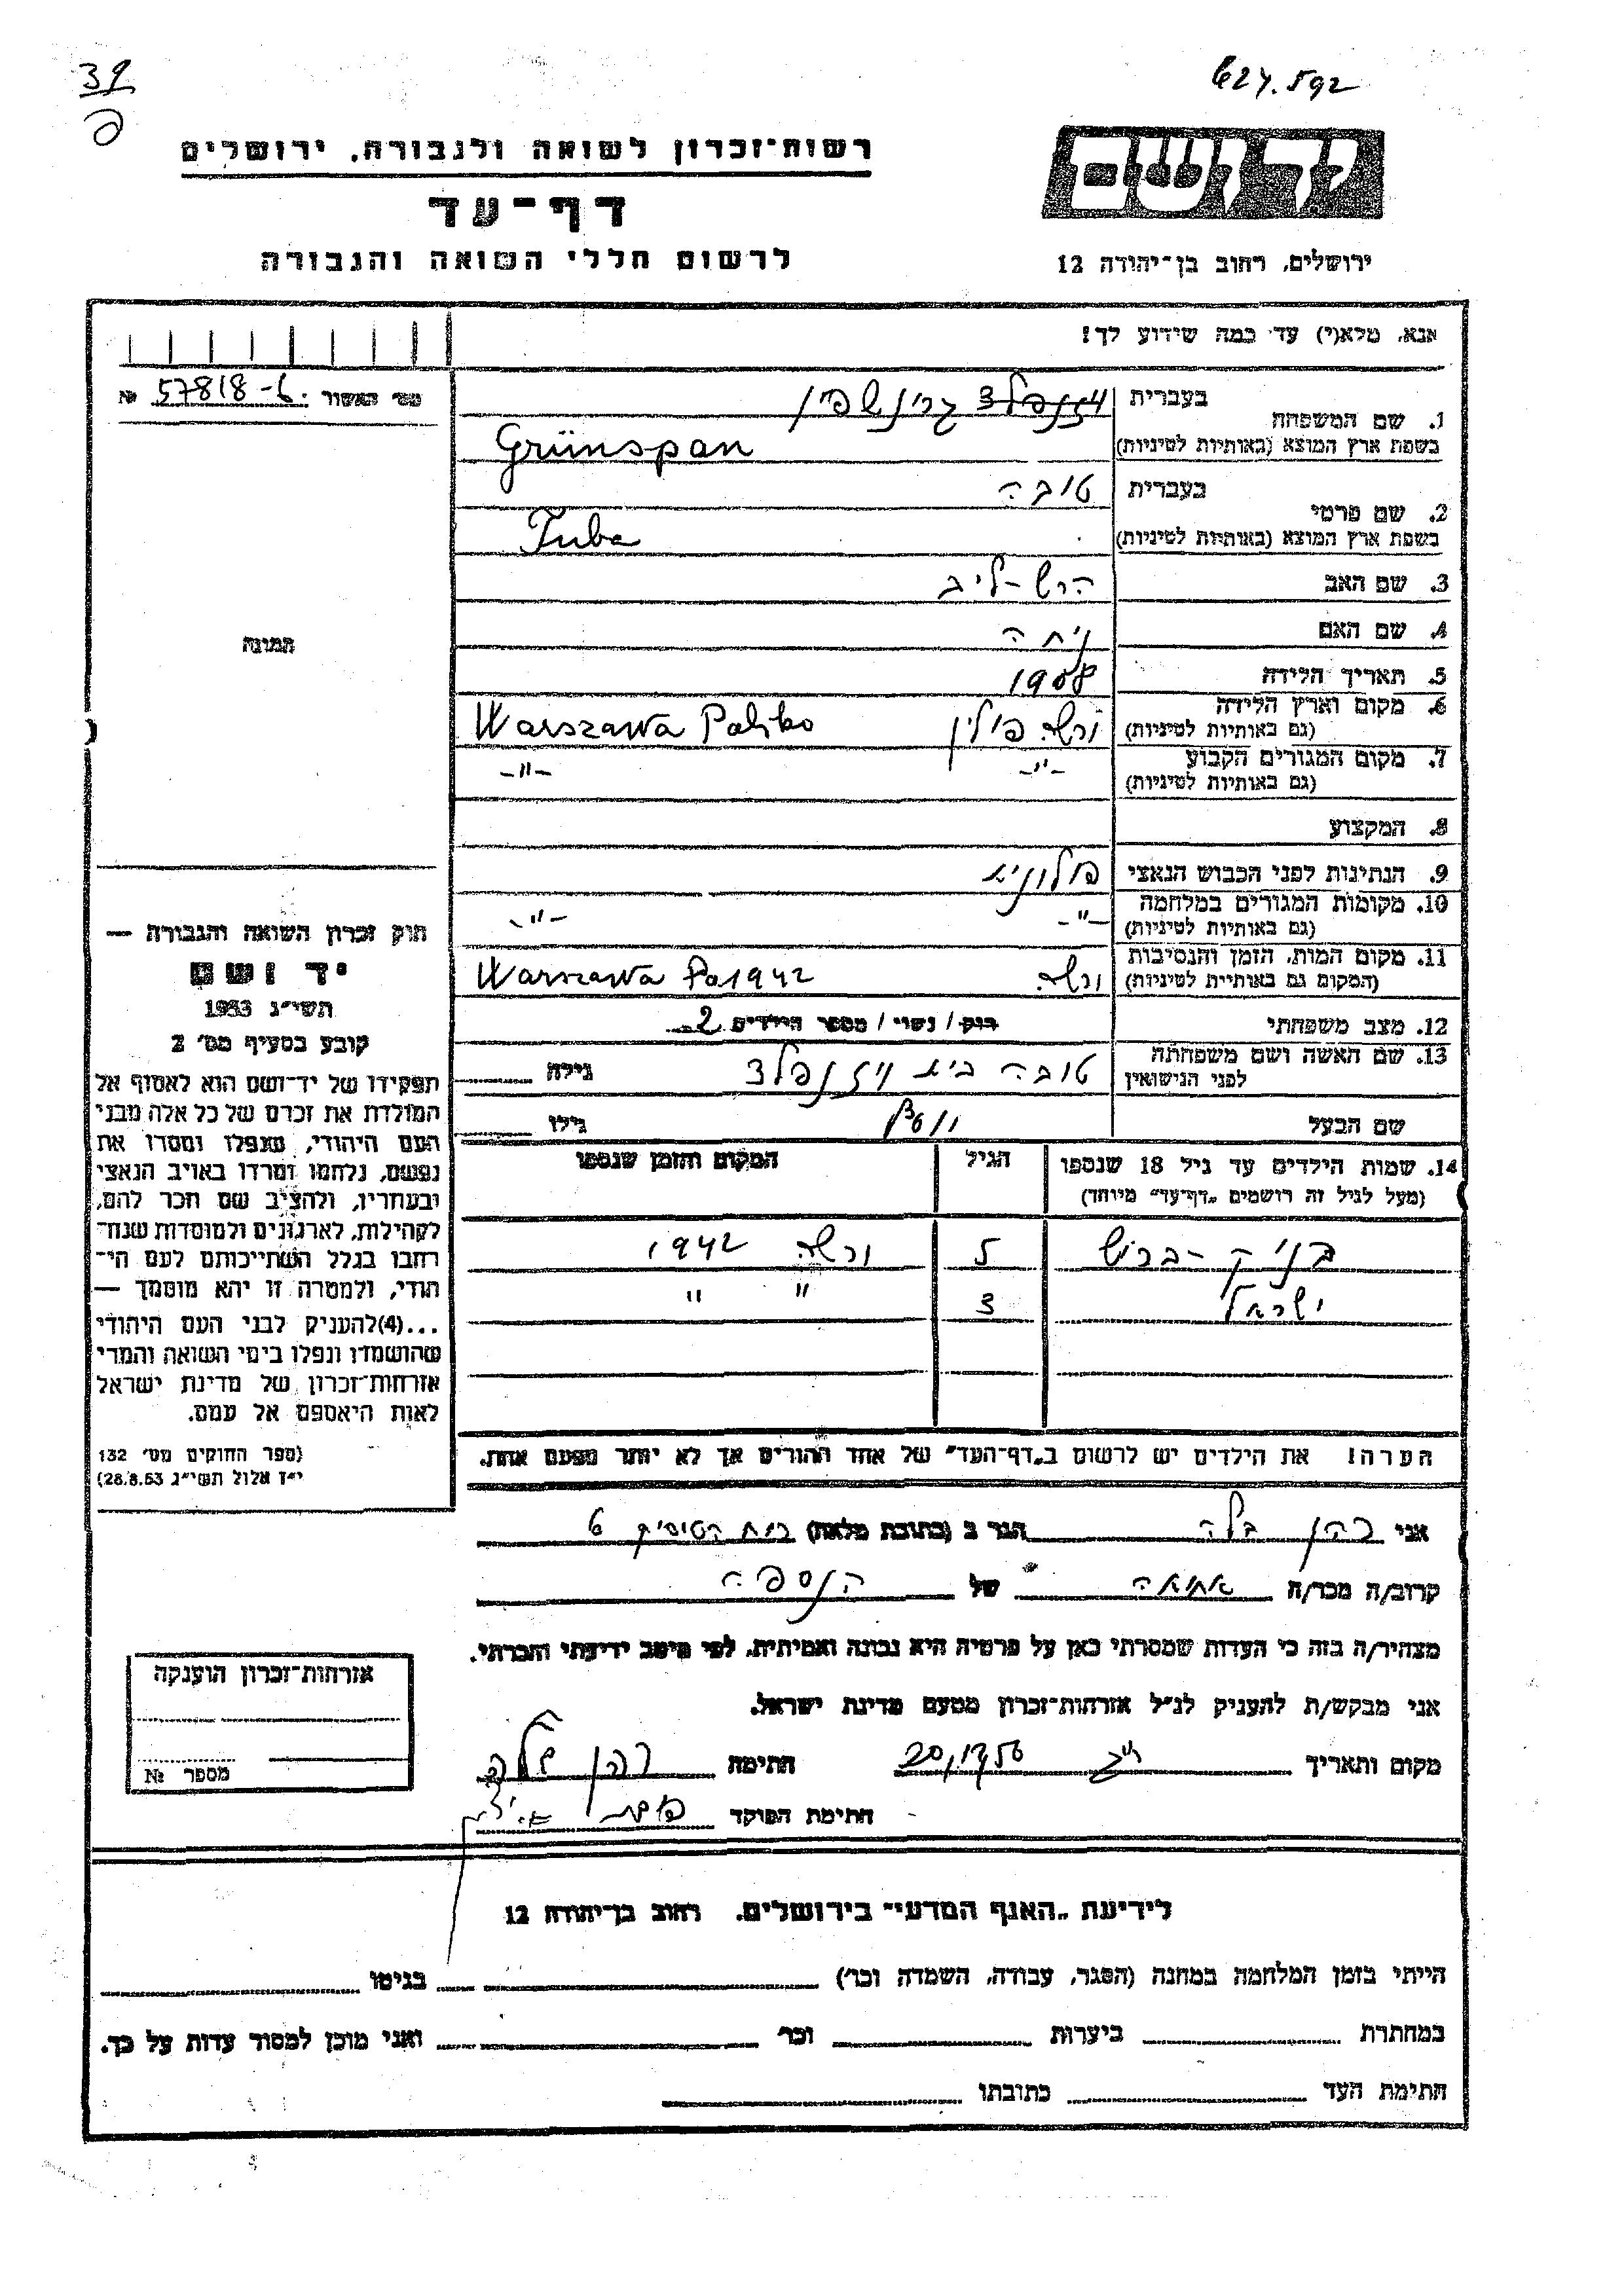 39
627.592
רשות־זכרון לשואה ולגבורה, ירושלים
דף־עד
לרשום חללי השואה והגבורה
יד ושם
ירושלים, רחוב בן־יהודה 12
אנא, מלא(י) עד כמה שידוע לך!
מס׳ האשור 57818-6 №
1. שם המשפחה
בעברית ויזנפלד גרינשפין
בשפת ארץ המוצא (באותיות לטיניות) Grünspan
2. שם פרטי
בעברית טובה
בשפת ארץ המוצא (באותיות לטיניות) Tuba
3. שם האב הרש-ליב
4. שם האם
5. תאריך הלידה 1908
6. מקום וארץ הלידה ורשה פולין Warszawa Polsko
(גם באותיות לטיניות)
7. מקום המגורים הקבוע -"- -"-
(גם באותיות לטיניות)
8. המקצוע
9. הנתינות לפני הכבוש הנאצי פולונית
10. מקומות המגורים במלחמה -"- -"-
(גם באותיות לטיניות)
11. מקום המות, הזמן והנסיבות ורשה Warszawa Po 1942
(המקום גם באותיות לטיניות)
12. מצב משפחתי רוק/ נשוי/ מספר הילדים 2
13. שם האשה ושם משפחתה טובה בית ויזנפלד גילה
לפני הנישואין
שם הבעל גילו
14. שמות הילדים עד גיל 18 שנספו הגיל המקום והזמן שנספו
(מעל לגיל זה רושמים „דף־עד״ מיוחד)
5 ורשה 1942
ישראל 3 " "
הערה! את הילדים יש לרשום ב„דף־העד״ של אחד ההורים אך לא יותר מפעם אחת.
התמונה
חוק זכרון השואה והגבורה —
יד ושם
תשי״ג 1953
קובע בסעיף מס׳ 2
תפקידו של יד־ושם הוא לאסוף אל
המולדת את זכרם של כל אלה מבני
העם היהודי, שנפלו ומסרו את
נפשם, נלחמו ומרדו באויב הנאצי
ובעוזריו, ולהציב שם וזכר להם,
לקהילות, לארגונים ולמוסדות שנח־
רחבו בגלל השתייכותם לעם הי־
הודי, ולמטרה זו יהא מוסמך —
...(4)להעניק לבני העם היהודי
שהושמדו ונפלו בימי השואה והמרי
אזרחות־זכרון של מדינת ישראל
לאות היאספם אל עמם.
(ספר החוקים מס׳ 132
י״ז אלול תשי״ג 28.8.53)
אני כהן בלה הגר ב (כתובת מלאה) 6
קרוב/ה מכר/ה אחותה של הנספה
מצהיר/ה בזה כי העדות שמסרתי כאן על פרטיה היא נכונה ואמיתית, לפי מיטב ידיעתי והכרתי.
אני מבקש/ת להעניק לנ״ל אזרחות־זכרון מטעם מדינת ישראל.
מקום ותאריך חתימה כהן בלה
חתימת הפוקד
אזרחות־זכרון הוענקה
מספר №
לידיעת „האגף המדעי״ בירושלים, רחוב בן־יהודה 12
הייתי בזמן המלחמה במחנה (הסגר, עבודה, השמדה וכו׳) בגיטו
במחתרת ביערות וכו׳ ואני מוכן למסור עדות על כך.
חתימת העד כתובתו